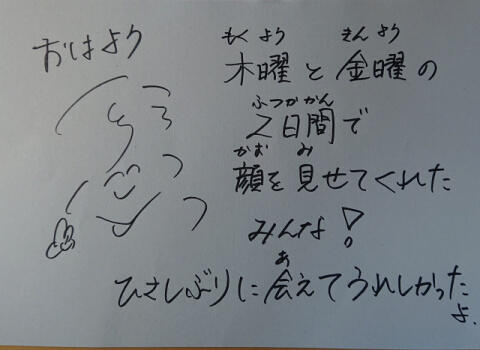 おはよう
もくよう きんよう
木曜と金曜の
ふつかかん
2日間で
かお み
顔を見せてくれた
みんな!
あ
ひさしぶりに会えてうれしかった
よ.